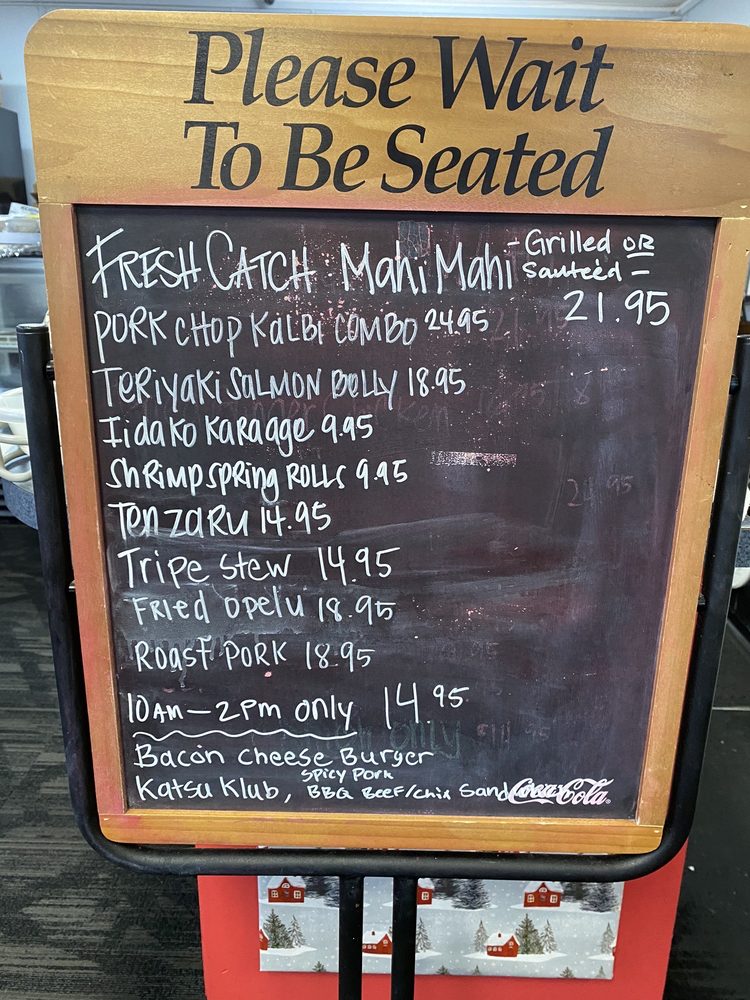 Please Wait
To Be Seated
FRESH CATCH Mahi Mahi - Grilled OR
Sauteéd -
21.95
PORK CHOP KALBI COMBO 24.95
TERiyaki SALMON BELLY 18.95
Iidako Karaage 9.95
Shrimp spring ROLLS 9.95
Ten zaru 14.95
Tripe Stew 14.95
FRied Opelu 18.95
Roast PORK 18.95
10Am - 2pm only 14.95
Bacon Cheese Burger
Spicy Pork
Katsu Klub, BBQ Beef/chix
Coca-Cola